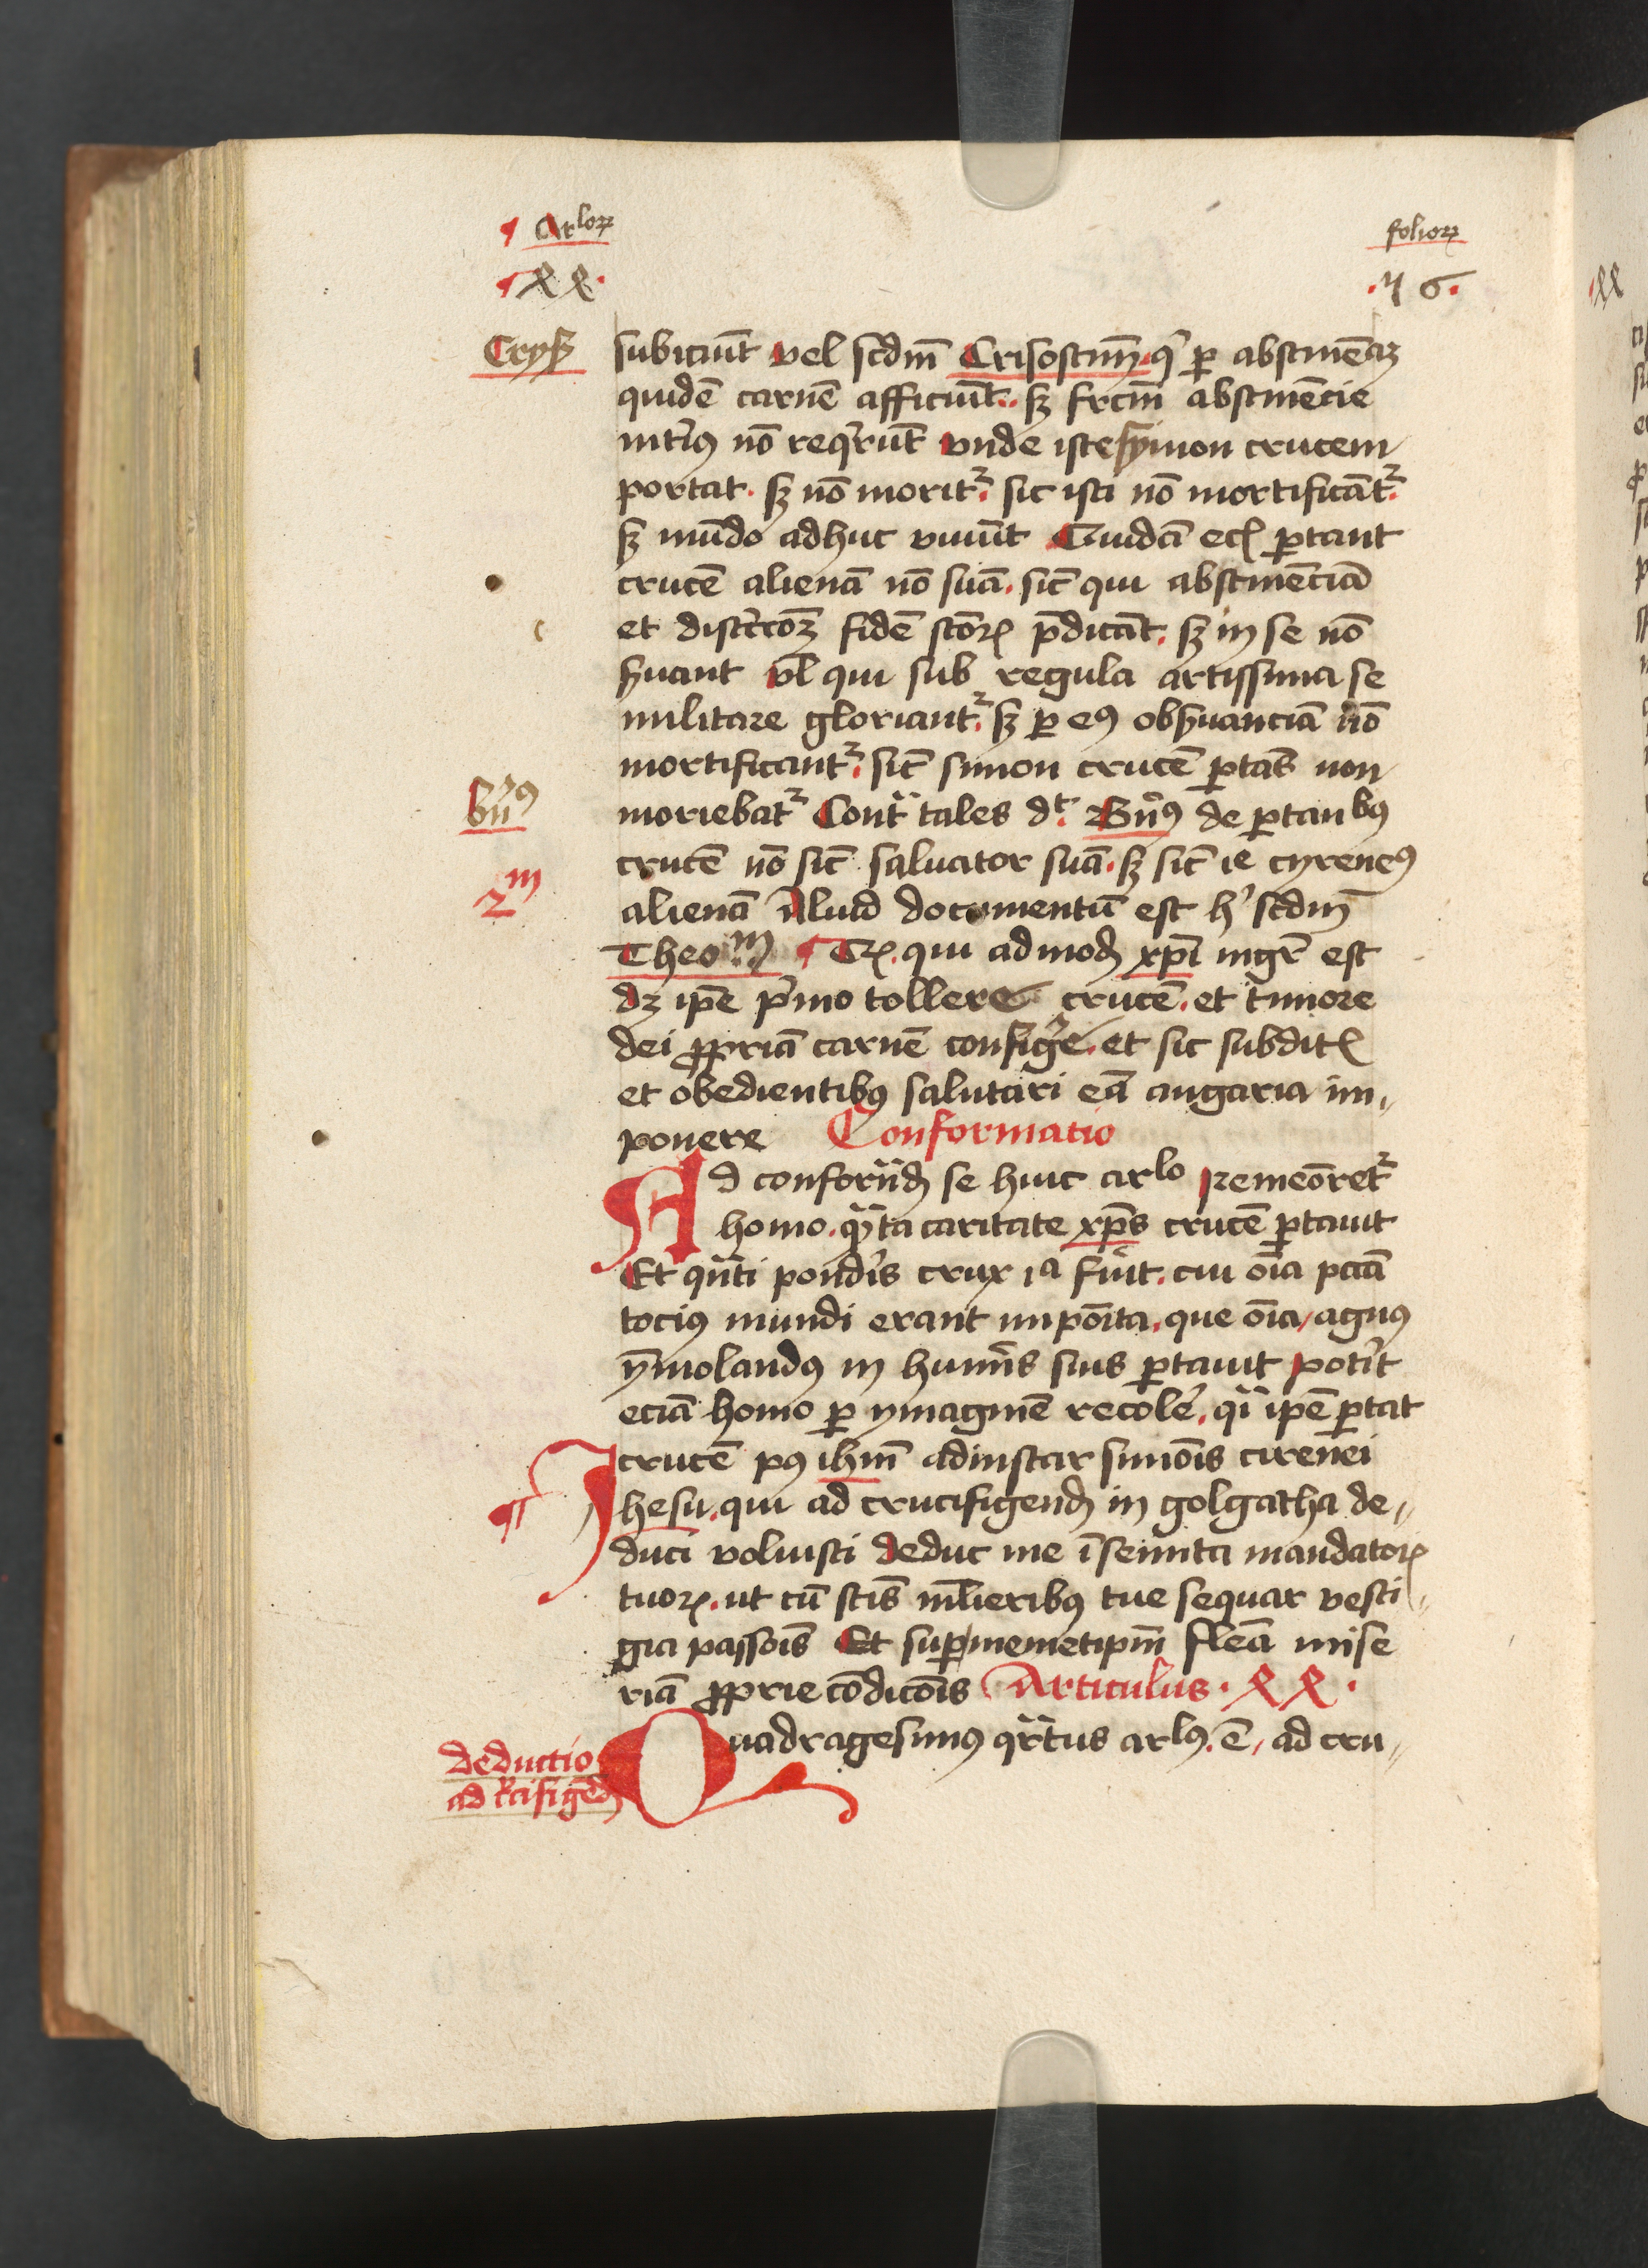 ¶ Arloꝝ
folioꝝ
¶ xx.
.46.
Crysꝰ
subiciūt vel scdm̄ Crisostm̄ qͥ ꝑ abstinēcꝫ
quidē carnē afficiūt. sꝫ frctm̄ abstinēcie
int̾iꝰ nō req̾rūt vnde iste symon crucem
portat. sꝫ nō moritᷣ. sic isti nō mortificātᷣ.
sꝫ mūdo adhuc viuūt Quidā ecꝫ ꝑtant
crucē alienā nō suā. sicᷓ qui abstinēciā
et disc̾coꝫ fidē scōꝝ p̄dicāt. sꝫ in se nō
s̾uant vl̄ qui sub regula artissima se
militare gloriantᷣ. sꝫ ꝑ eꝰ obs̾uanciā nō
mortificantᷣ. sicᷓ simon crucē ꝑtās non
Bn̾ꝰ
moriebatᷣ Cont̾ tales dt. Bn̾ꝰ de ꝑtanbꝰ
crucē nō sicᷓ saluator suā. sꝫ sicᷓ ie cyreneꝰ
2m
alienā Aliud documentū est hͥ scdm̄
Theom ¶ Tꝝ. qui ad modꝫ xp̄i mgr̄ est
dꝫ ip̄e pͥmo tollere crucē. et timore
dei ꝓpriā carnē config̾e. et sic subditꝭ
et obedientibꝰ salutari eā angaria im
ponere Conformatio
Ad conformꝫ se huic arlo rememōretᷣ
homo. qᷓta caritate xp̄s crucē ꝑtauit
Et qᷓti pond̾is crux ia fuit. cui oīa pctā
tociꝰ mundi erant impōita. que oīa agnꝰ
ȳmolandꝰ in hum̾is suis ꝑtauit pot̾it
eciā homo ꝑ ymaginē recol̾e. qͥ ip̄e ꝑtat
crucē pꝰ ihm̄ adinstar simōis cirenei
¶ Jhesu. qui ad crucifigendꝫ in golgatha de
duci voluisti deduc me ī semita mandatoꝝ
tuoꝝ. ut cū scīs ml̾ieribꝰ tue sequar vesti
gia passōis Et suꝑ memetip̄m fleā mise
riā ꝓprie cōdicōis Articulus . xx .
Quadragesimꝰ qᷓrtus arlꝰ. ē ad cru
deductio
ad c̾cifigēdꝫ